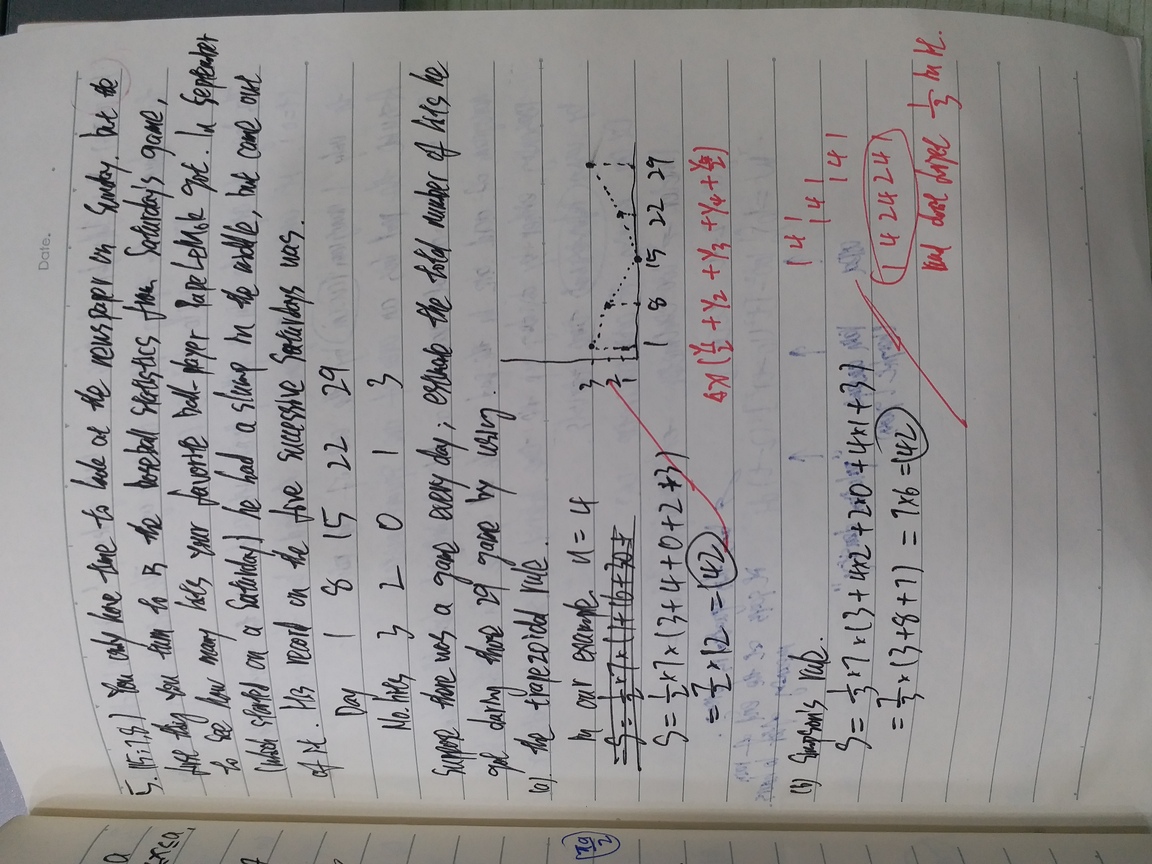 Date.
5. (15; 7,8) You only have time to look at the newspaper on Sunday. but the
first thing you turn to is the baseball statistics from Saturday's game,
to see how many hits your favorite Ball-player PapeLeMok got. In September
(which started on a Saturday) he had a slump in the middle, but came out
of it. His record on the five successive Saturdays was.
Day 1 8 15 22 29
No. hits 3 2 0 1 3
Suppose there was a game every day; estimate the total number of hits he
got during those 29 game by using.
(a). the trapezoidal rule.
In our example n = 4
S = 1/2 × 7 × (1+16+30+
S = 1/2 × 7 × (3+4+0+2+3)
= 7/2 × 12 = 42
3
2
1
1 8 15 22 29
Δx (y1/2 + y2 + y3 + y4 + y5/2)
(b) Simpson's rule.
S = 1/3 × 7 × (3 + 4×2 + 2×0 + 4×1 + 3)
= 7/3 × (3+8+7) = 7×6 = 42
1 4 1
1 4 1
1 4 1
1 4 2 4 2 4 1
and dont forget 1/3 in it.
a
≤a,
πa/2